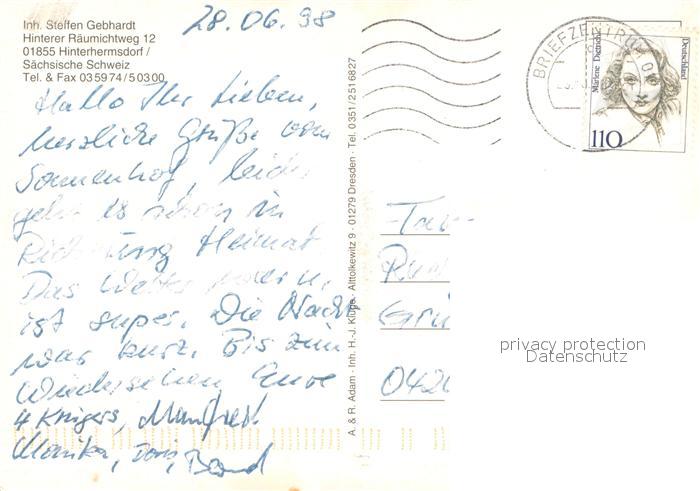 28.06.98
Inh. Steffen Gebhardt
Hinterer Räumichtweg 12
01855 Hinterhermsdorf /
Sächsische Schweiz
Tel. & Fax 035974/50300
Hallo Ihr Lieben,
herzliche Grüße vom
Sonnenhof, leider
geht es schon in
Richtung Heimat
Das Wetter war u.
ist super. Die Nacht
war kurz. Bis zum
Wiedersehen Eure
4 Krügers, Manfred.
Monika, Doris, Bernd
A. & R. Adam · Inh. H.-J. Kluge · Alttolkewitz 9 · 01279 Dresden · Tel. 0351/2516827
BRIEFZENTRUM
Marlene Dietrich
Deutschland
110
Fam
Grü
042
privacy protection
Datenschutz